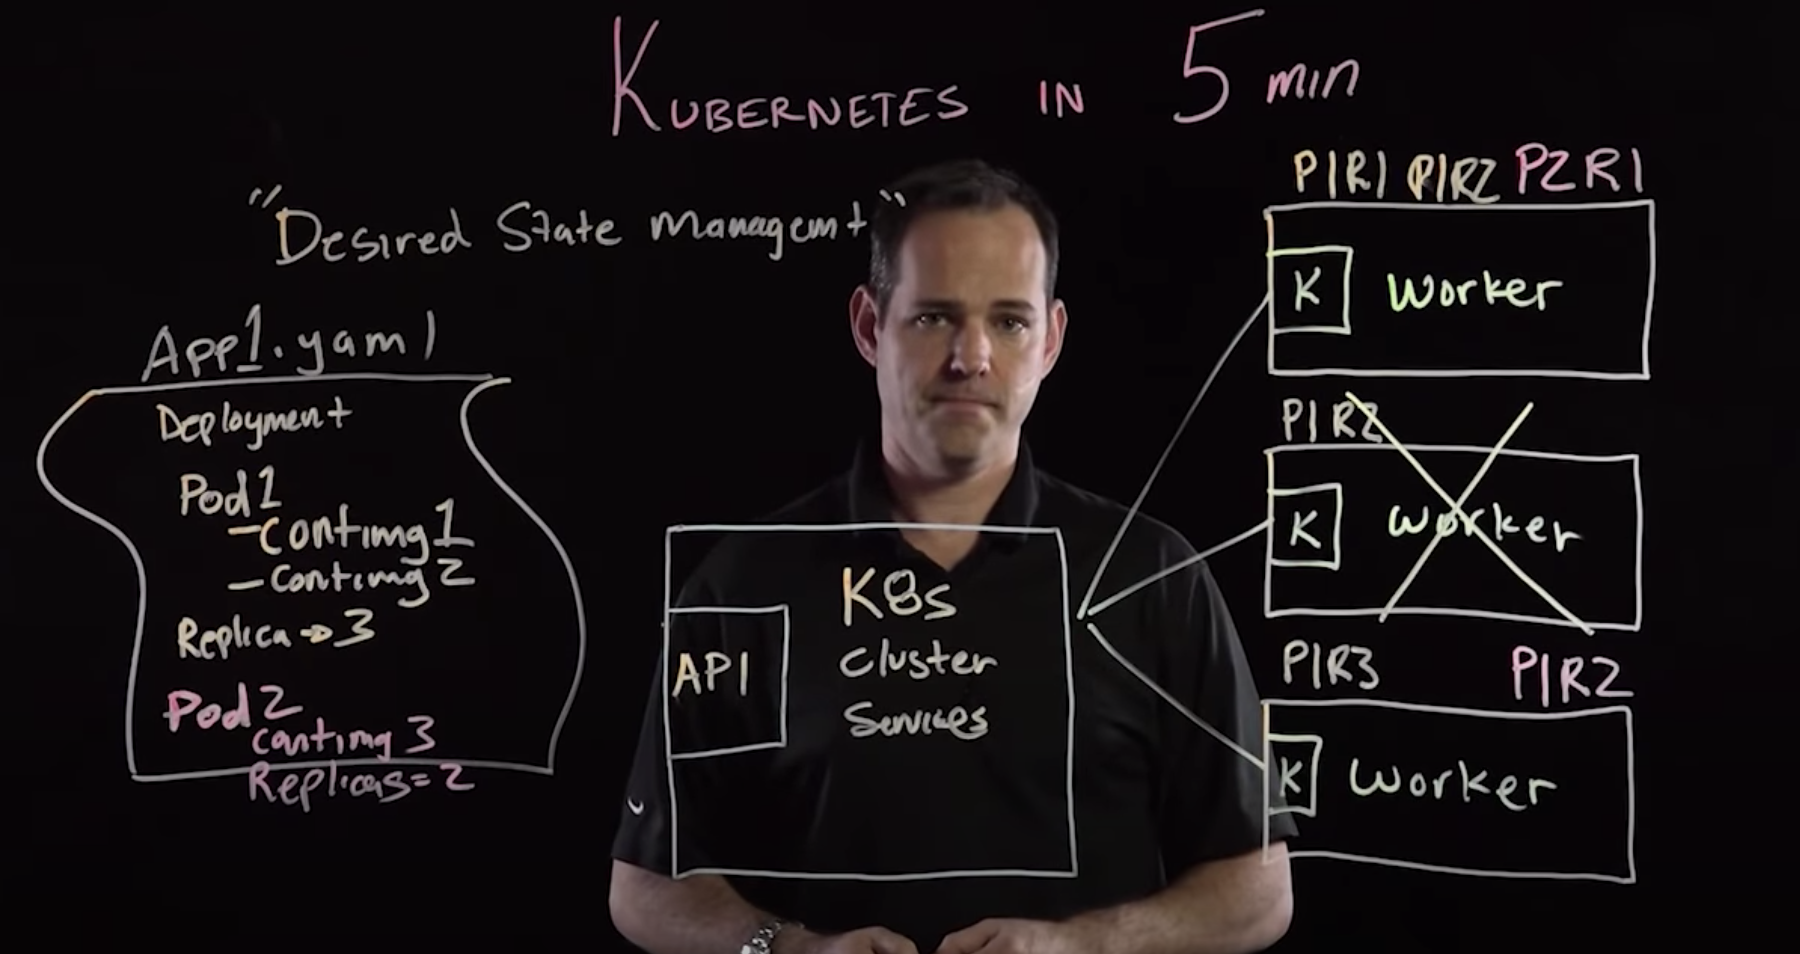 KUBERNETES IN 5 min
"Desired State Managemt"
App1.yaml
Deployment
Pod1
- Contimg 1
- Contimg 2
Replica → 3
Pod2
contimg 3
Replicas = 2
API
K8s
Cluster
Services
P1R1 P1R2 P2R1
K Worker
P1R2
K Worker
P1R3 P1R2
K Worker